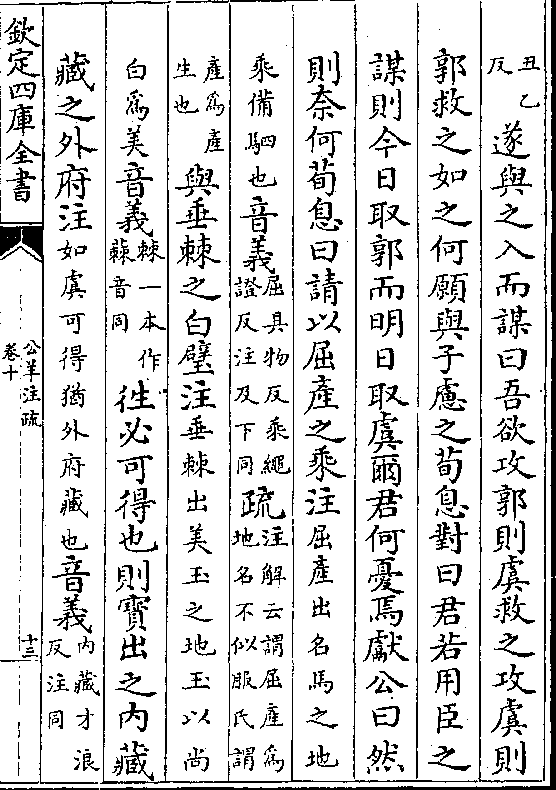 丑乙反遂與之入而謀曰吾欲攻郭則虞救之攻虞則
郭救之如之何願與子慮之荀息對曰君若用臣之
謀則今日取郭而明日取虞爾君何憂焉獻公曰然
則奈何荀息曰請以屈產之乘注屈產出名馬之地
乘備駟也音義屈具物反乘繩證反注及下同疏注解云謂屈產爲地名不似服氏謂
產爲產生也與垂棘之白璧注垂棘出美玉之地玉以尚
白爲美音義棘一本作蕀音同往必可得也則寶出之內藏
藏之外府注如虞可得猶外府藏也音義內藏才浪反注同
欽定四庫全書
公羊注疏
卷十
十三